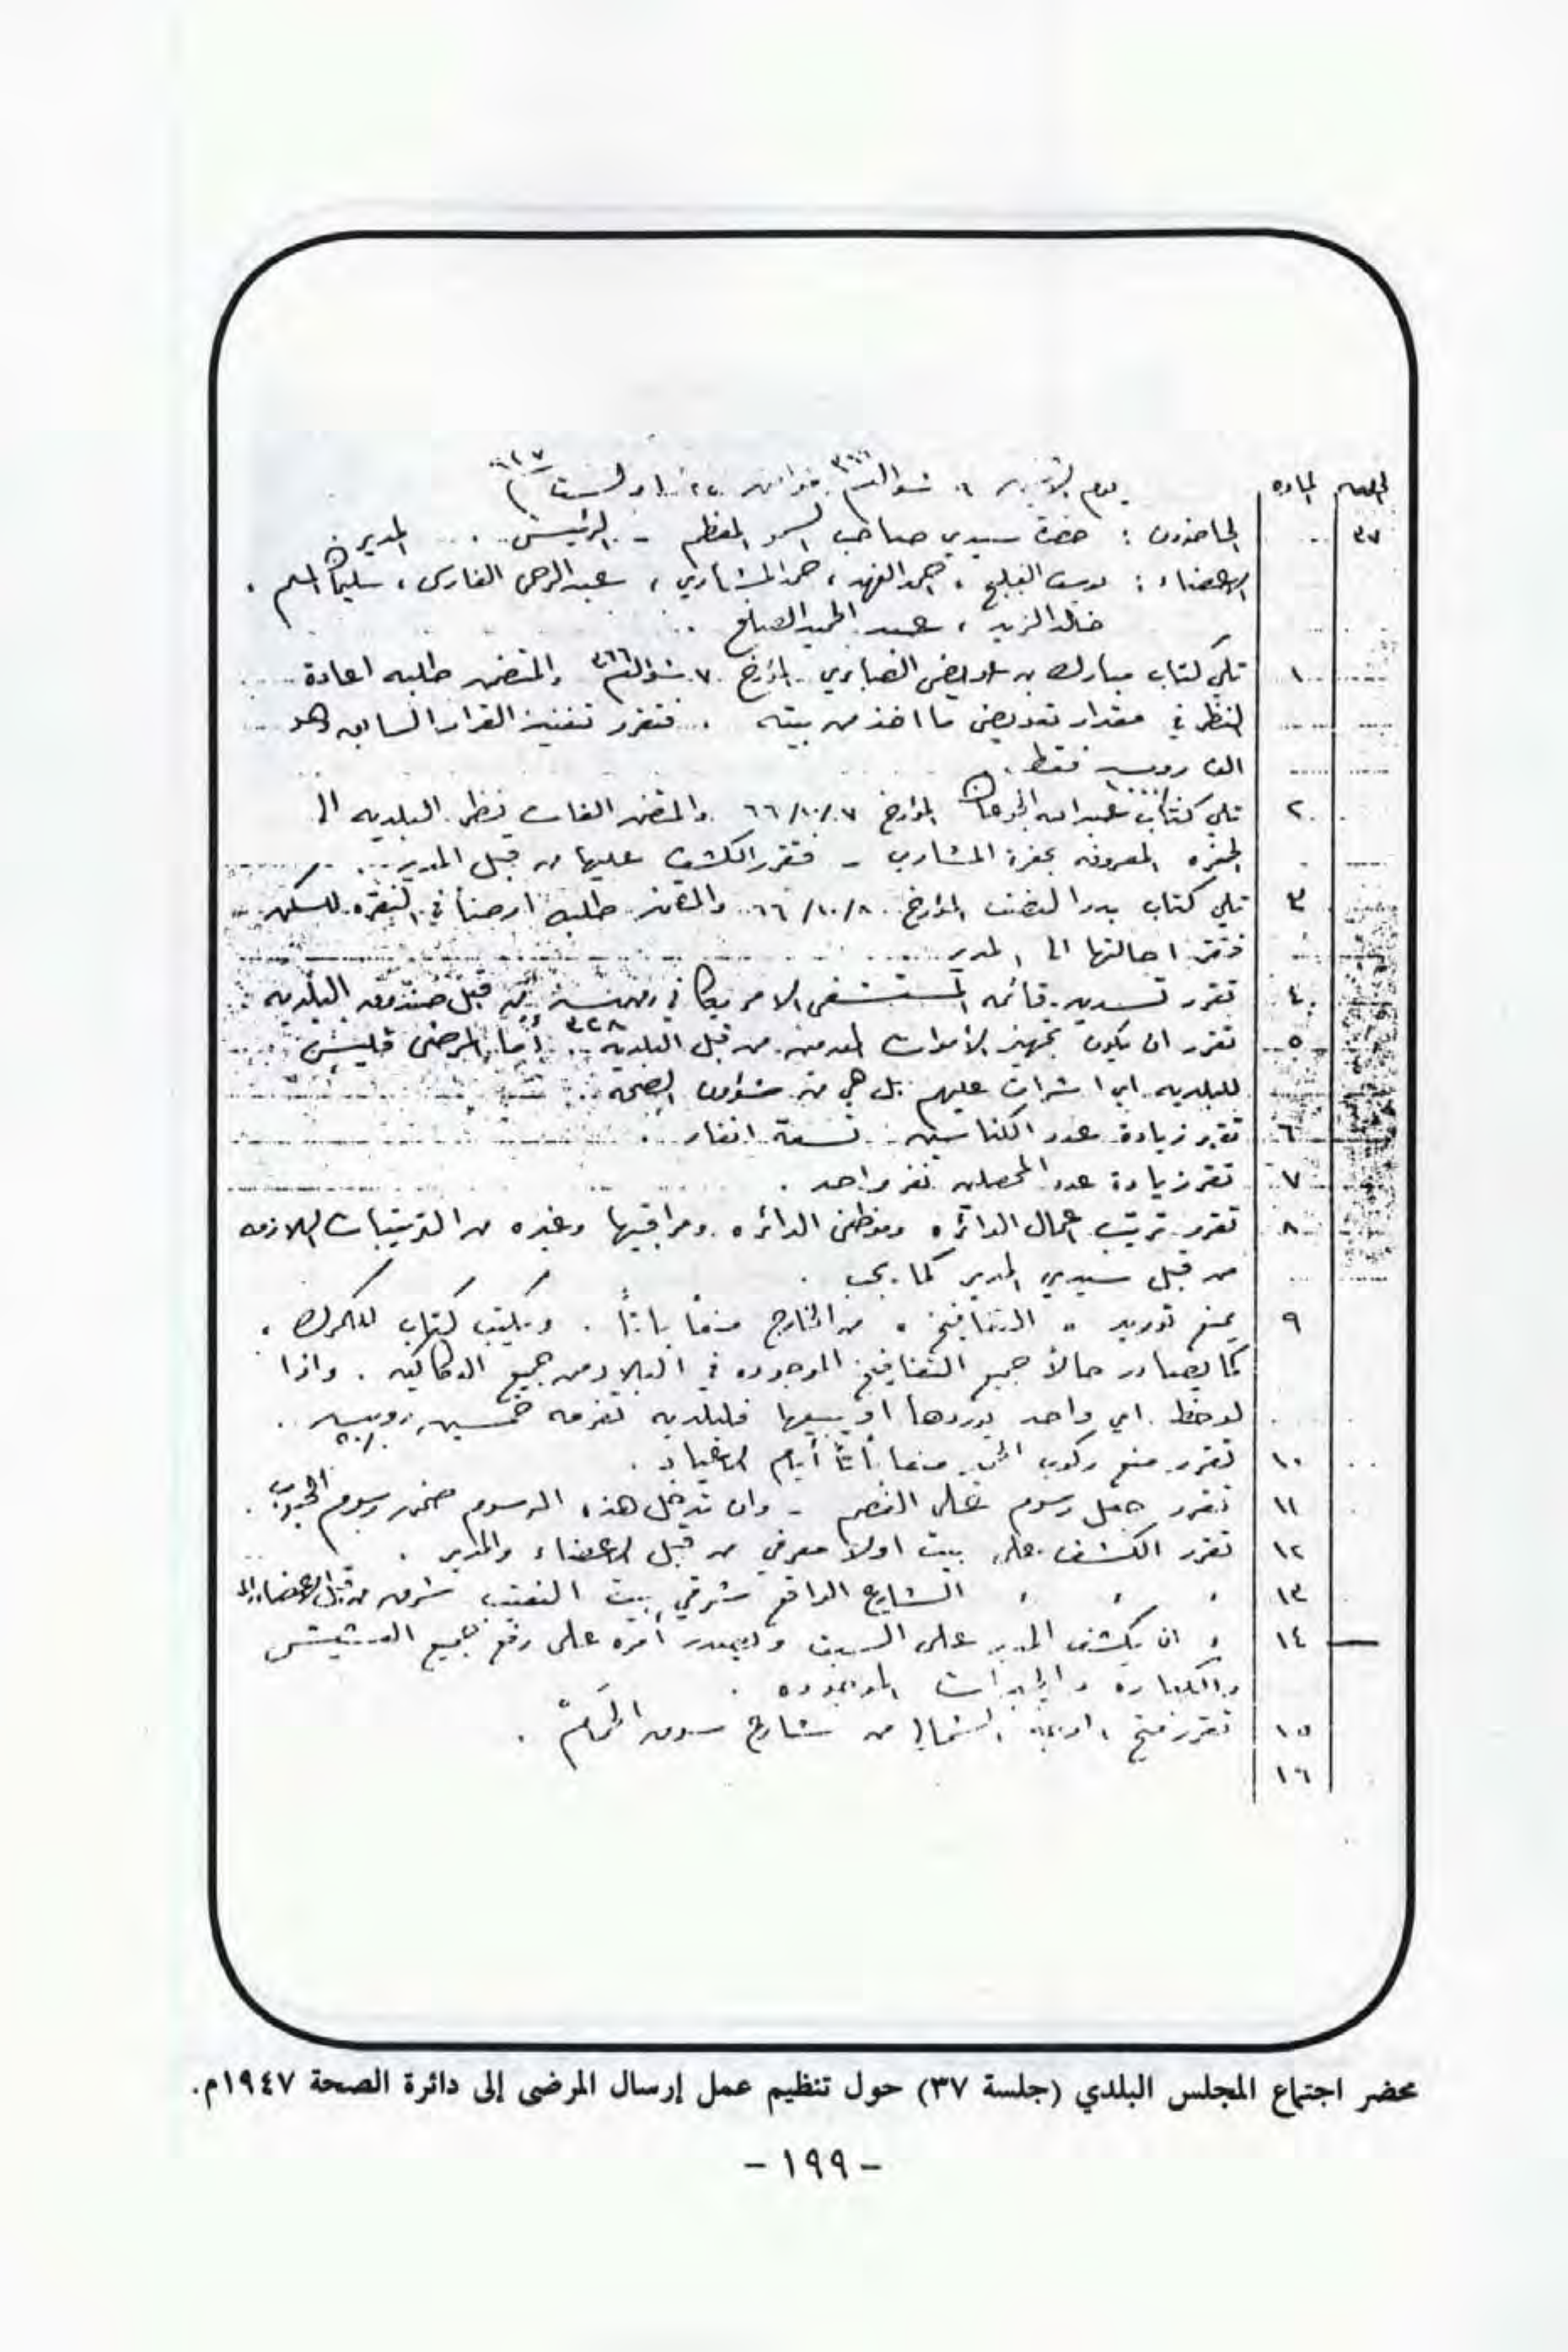 الجلسه الماده
يوم الاثنين ٦ شوال ٣٦٦ موافق اوغسطس ٩٤٧
٣٧ الحاضرون : حضرة سيدي صاحب السمو المعظم - الرئيس . المدير
الاعضاء : يوسف الفليج ، احمد الفهد ، حمد المشاري ، عبدالرحمن الفارس ، سليمان المسلم .
خالد الزيد ، عبد الحميد الصانع .
١ تلي كتاب مبارك بن الصباري المؤرخ ٧ شوال ٣٦٦ والمتضمن طلبه اعادة
النظر في مقدار تعويض ما اخذ من بيته . فتقرر تنفيذ القرار السابق وهو
الف روبيه فقط .
١٠٠٠
٢ تلي كتاب عبدالله الجوعان المؤرخ ٦٦/١٠/٧ والمتضمن الفات نظر البلديه الى
الحفره المعروفه بحفرة المشاري - فتقرر الكشف عليها من قبل المدير .
٣ تلي كتاب بدر المؤرخ ٦٦/١٠/٨ والمتضمن طلبه ارضاً في النقره للسكن
فتقرر احالتها الى المدير
٤ تقرر تسديد قائمه المستشفى الامريكاني من قبل صندوق البلديه
٣٢٨
٥ تقرر ان يكون تجهيز الاموات المعدمين من قبل البلديه . أما المرضى فليس
للبلديه اي اشراف عليهم بل هي من شؤون الصحه .
٦ تقرر زيادة عدد الكناسين تسعة انفار .
٧ تقرر زيادة عدد المحصلين نفر واحد .
٨ تقرر ترتيب اعمال الدائره وموظفى الدائره ومراقبيها وغيره من الترتيبات اللازمه
من قبل سيدي المدير كما يجب .
٩ يمنع توريد " النفافيخ " من الخارج منعاً باتاً . ويكتب كتاب للكمرك ،
كما يصادر حالاً جميع النفافيخ الموجوده في البلاد ومن جميع الدكاكين . واذا
لوحظ اي واحد يوردها او يبيعها فالبلديه تغرمه خمسين روبيه .
٥٠/٠
١٠ تقرر منع ركوب الحمير منعا باتاً أيام الاعياد .
١١ تقرر جعل رسوم على الفحم - وان تدخل هذه الرسوم ضمن رسوم الحبوب .
١٢ تقرر الكشف على بيت اولاد معرفي من قبل الاعضاء والمدير .
١٣ " " " الشارع الواقع شرقي بيت النقيب شرق من قبل الاعضاء
١٤ " ان يكشف المدير على السيف ويصدر أمره على رفع جميع العشيش
الموجوده .
١٥ تقرر فتح الشمالي من شارع سوق الحمام .
١٦
محضر اجتماع المجلس البلدي (جلسة ٣٧) حول تنظيم عمل إرسال المرضى إلى دائرة الصحة ١٩٤٧م.
- ١٩٩ -